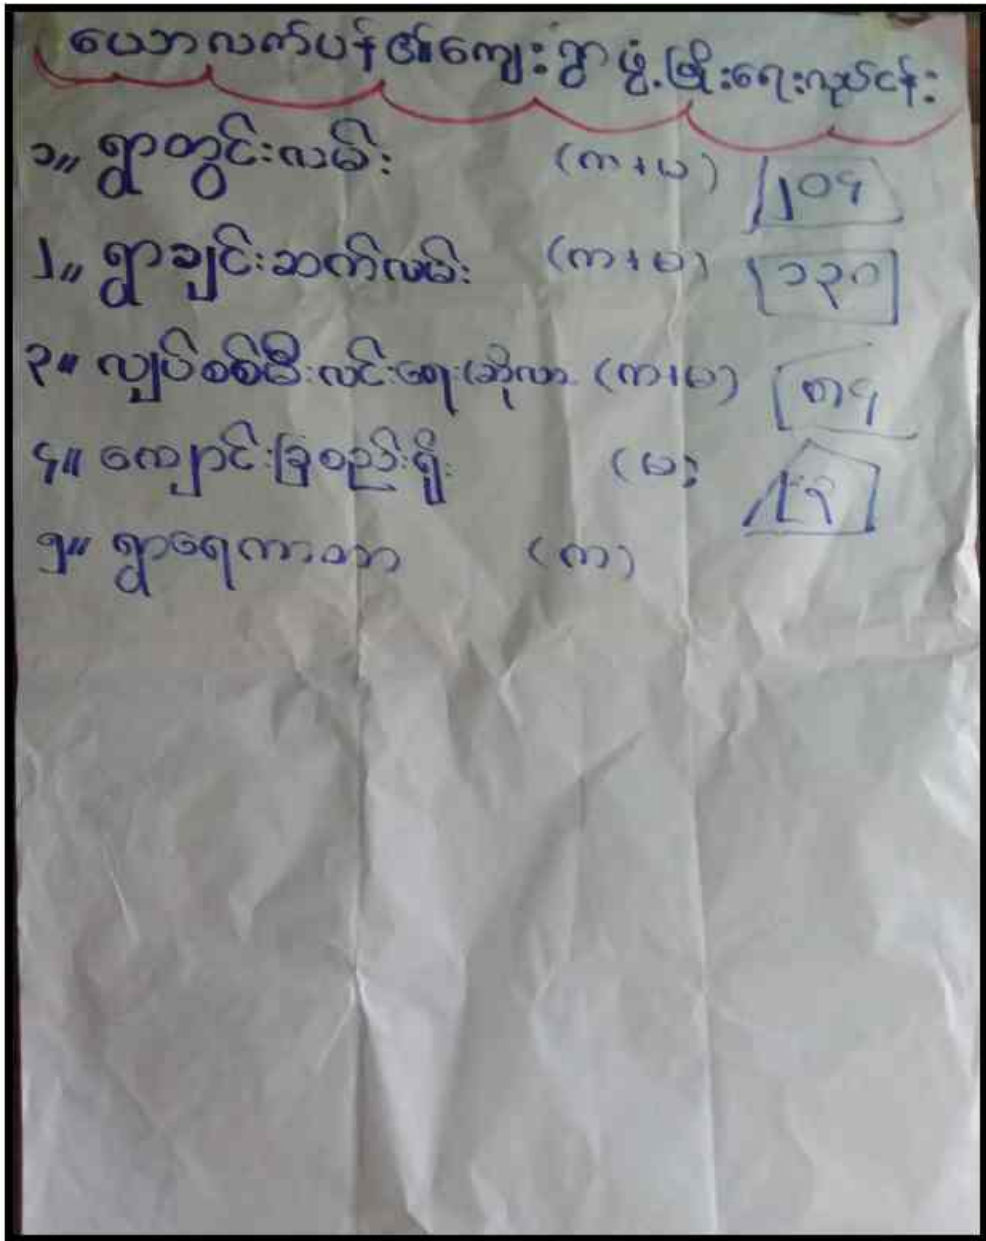 ယောလက်ပန်၏ကျေးရွာဖွံ့ဖြိုးရေးလုပ်ငန်း
၁။ ရွာတွင်းလမ်း (က+မ) ၂၀၄
၂။ ရွာချင်းဆက်လမ်း (က+မ) ၁၃၀
၃။ လျှပ်စစ်မီးလင်းရေး(ဆိုလာ (က+မ)
၄။ ကျောင်းခြံစည်းရိုး (မ)
၅။ ရွာရေကာတာ (က)